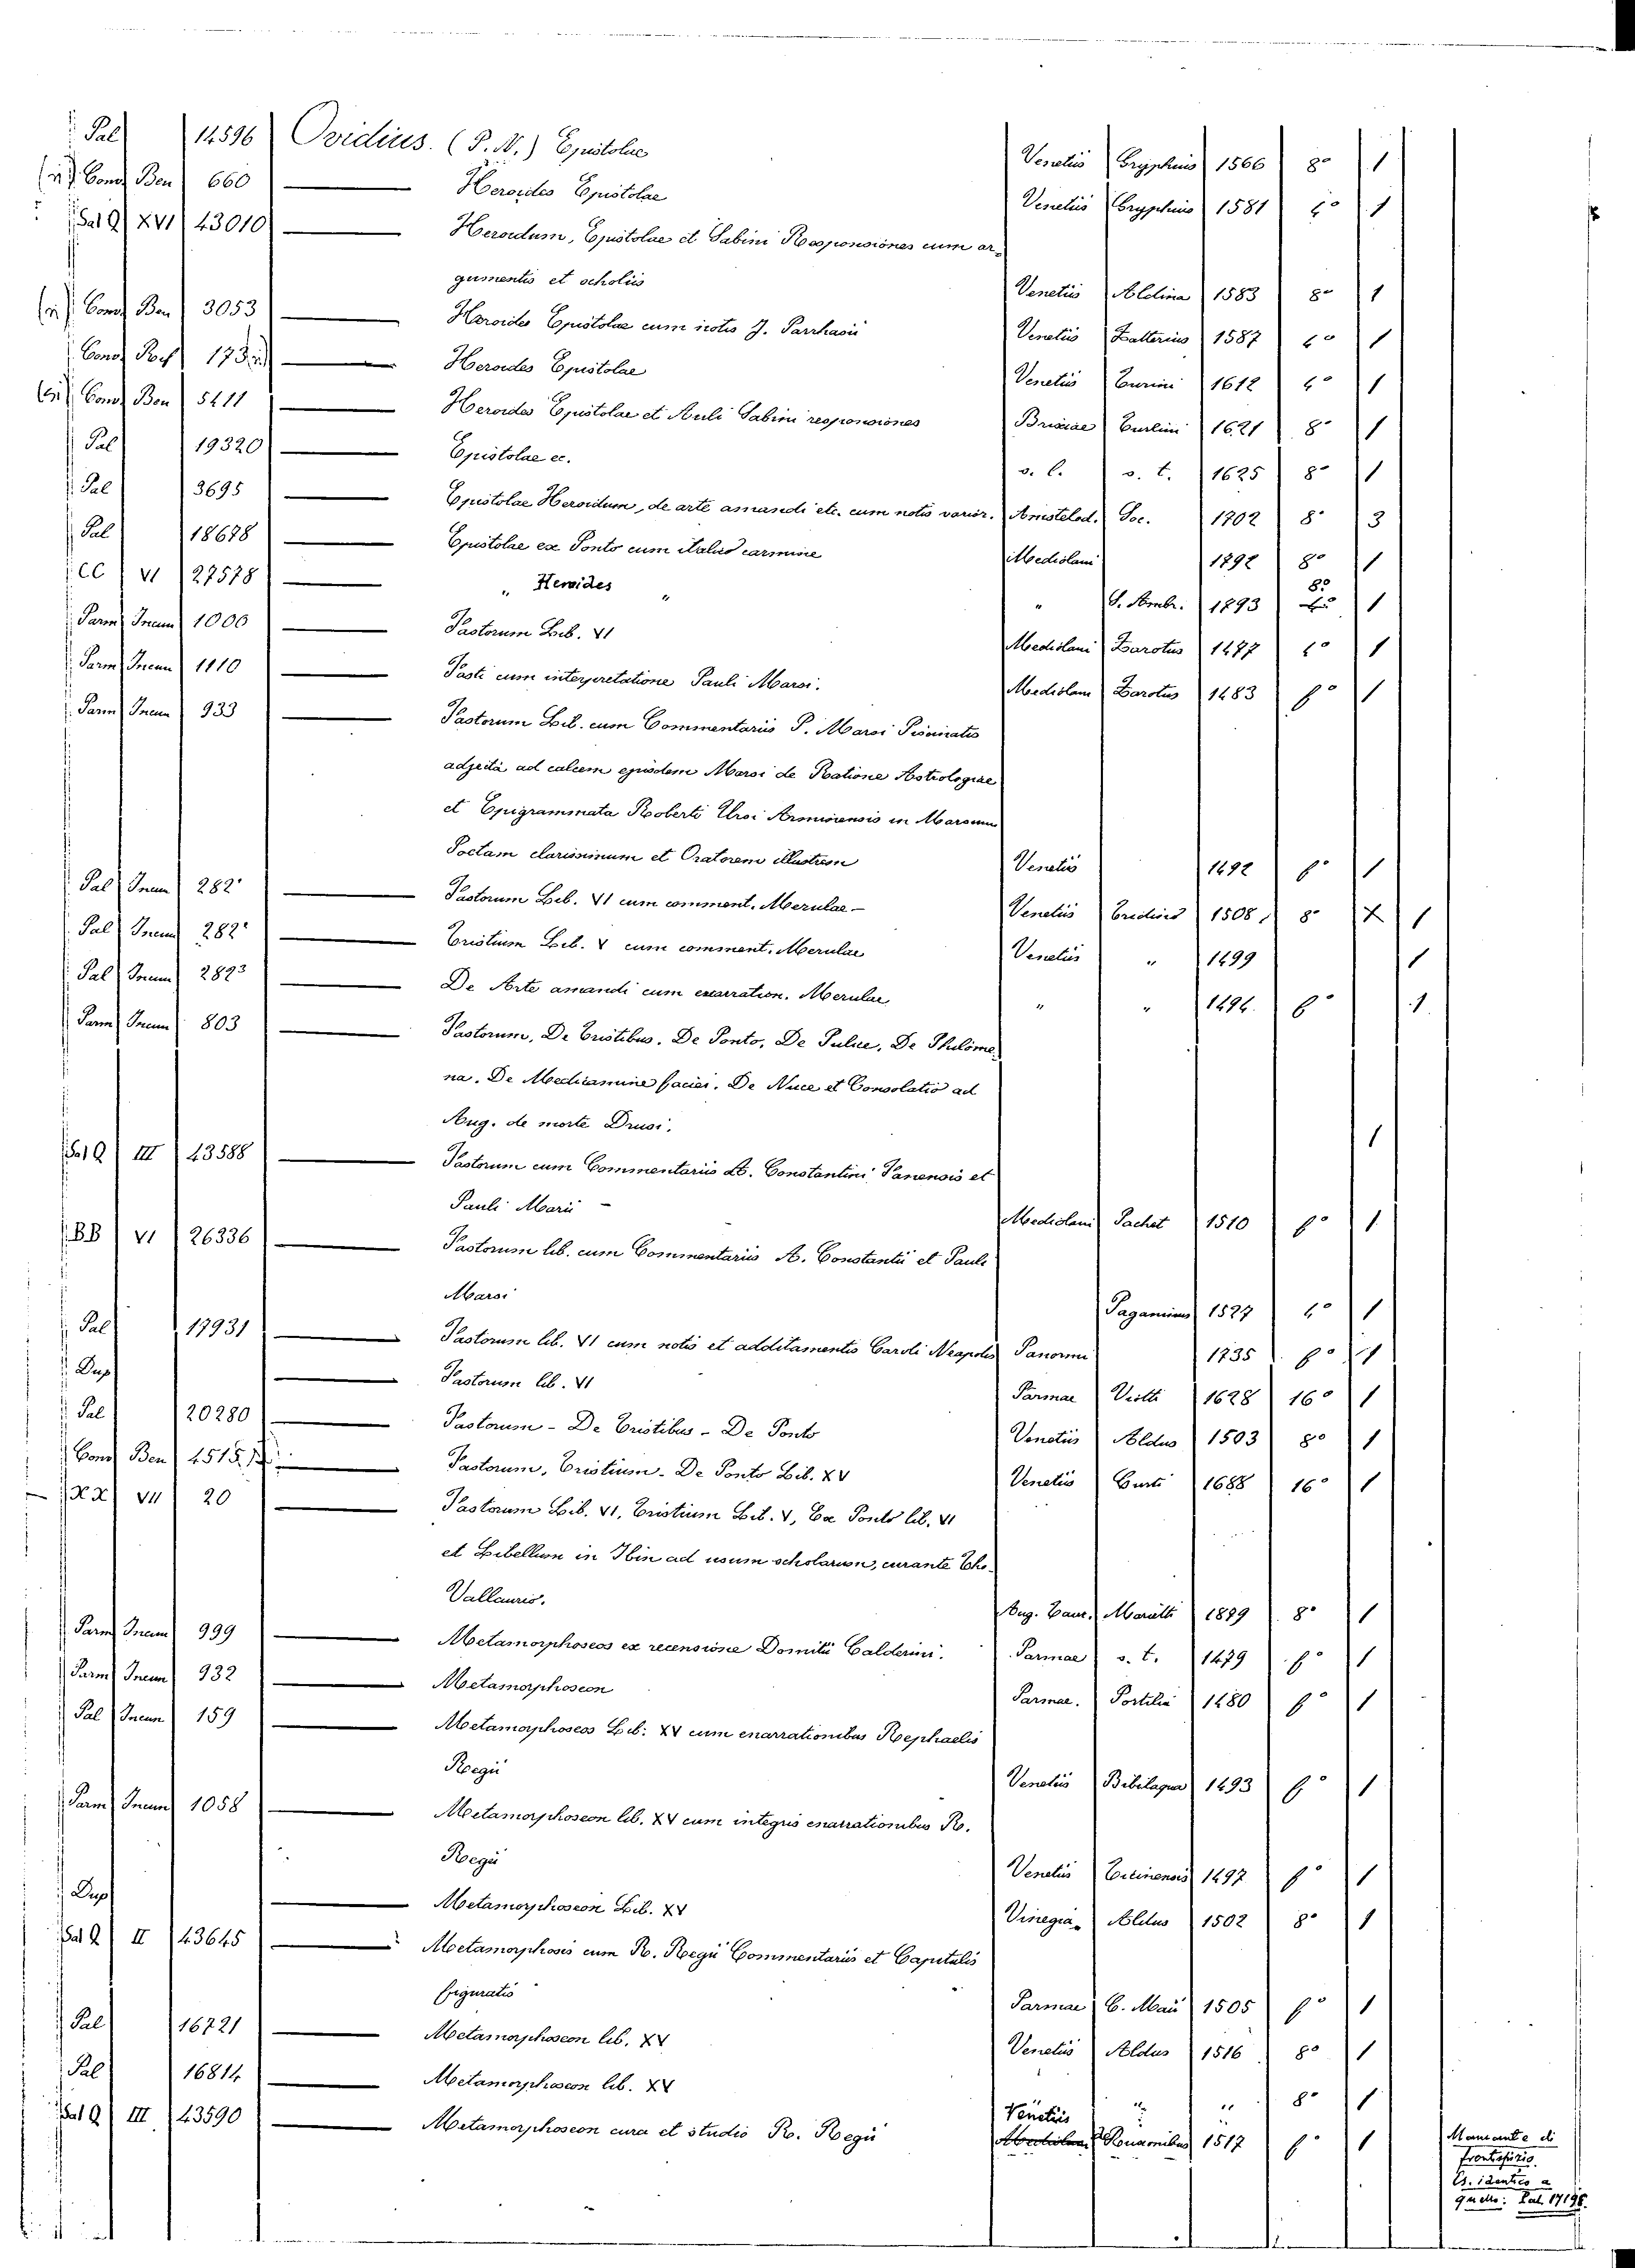 Pal 14596 Ovidius. (P. N.) Epistolae Venetiis Gryphius 1566 8° 1
Conv Ben 660 Heroides Epistolae Venetiis Gryphius 1581 4° 1
Sal Q XVI 43010 Heroidum, Epistolae et Sabini Responsiones cum ar-
gumentis et scholiis Venetiis Aldina 1583 8° 1
Conv Ben 3053 Heroides Epistolae cum notis J. Parrhasii Venetiis Zalterius 1587 4° 1
Conv Heroides Epistolae Venetiis Turini 1612 4° 1
Conv Ben 5411 Heroides Epistolae et Auli Sabini responsiones Brixiae Turlini 1621 8° 1
Pal 19320 Epistolae ec. s. l. s. t. 1625 8° 1
Pal 3695 Epistolae Heroidum, de arte amandi etc. cum notis varior. Amstelod. Soc. 1702 8° 3
Pal 18678 Epistolae ex Ponto cum italico carmine Mediolani 8° 1
CC VI 27578 " Heroides " " S. Ambr. 1893 8° 1
Parm Incun 1000 Fastorum Lib. VI Mediolani Zarotus 1477 4° 1
Parm Incun 1110 Fasti cum interpretatione Pauli Marsi. Mediolani Zarotus 1483 f° 1
Parm Incun 933 Fastorum Lib. cum Commentariis P. Marsi Piscinatis
adjecta ad calcem ejusdem Marsi de Ratione Astrologiae
et Epigrammata Roberti Ursi Ariminensis in Marsum
Poetam clarissimum et Oratorem illustrem Venetiis 1492 f° 1
Pal Incun 282¹ Fastorum Lib. VI cum comment. Merulae - Venetiis Tridino 1508 8° 1
Pal Incun 282² Tristium Lib. V cum comment. Merulae Venetiis " 1499 1
Pal Incun 282³ De Arte amandi cum enarration. Merulae " " 1494 f° 1
Parm Incun 803 Fastorum, De Tristibus. De Ponto, De Pulice, De Philome
na. De Medicamine faciei. De Nuce et Consolatio ad
Aug. de morte Drusi. 1
Sal Q III 43588 Fastorum cum Commentariis A. Constantini Fanensis et
Pauli Marii - Mediolani Pachet 1510 f° 1
BB VI 26336 Fastorum lib. cum Commentariis A. Constantii et Pauli
Marsi Paganinus 1527 4° 1
Pal 17931 Fastorum lib. VI cum notis et additamentis Caroli Neapolis Panormi 1735 f° 1
Dup Fastorum lib. VI Parmae Viotti 1628 16° 1
Pal 20280 Fastorum - De Tristibus - De Ponto Venetiis Aldus 1503 8° 1
Conv Ben Fastorum, Tristium - De Ponto Lib. XV Venetiis Curti 1688 16° 1
XX VII 20 Fastorum Lib. VI, Tristium Lib. V, Ex Ponto lib. VI
et Libellum in Ibin ad usum scholarum, curante Tho.
Vallaurio. Aug. Taur. Marietti 8° 1
Parm Incun 999 Metamorphoseos ex recensione Domitii Calderini. Parmae s. t. 1479 f° 1
Parm Incun 932 Metamorphoseon Parmae. Portilia 1480 f° 1
Pal Incun 159 Metamorphoseos Lib: XV cum enarrationibus Rephaelis
Regii Venetiis Bibilaqua 1493 f° 1
Parm Incun 1058 Metamorphoseon lib. XV cum integris enarrationibus R.
Regii Venetiis Ticinensis 1497 f° 1
Dup Metamorphoseon Lib. XV Vinegia Aldus 1502 8° 1
Sal Q II 43645 Metamorphosis cum R. Regii Commentariis et Capitulis
figuratis Parmae Maii 1505 f° 1
Pal 16721 Metamorphoseon lib. XV Venetiis Aldus 1516 8° 1
Pal 16814 Metamorphoseon lib. XV " " 8° 1
Sal Q III 43590 Metamorphoseon cura et studio R. Regii Venetiis Rusconibus 1517 f° 1
Mancante di
frontespizio.
Es. identico a
quello: Pal. 17195.